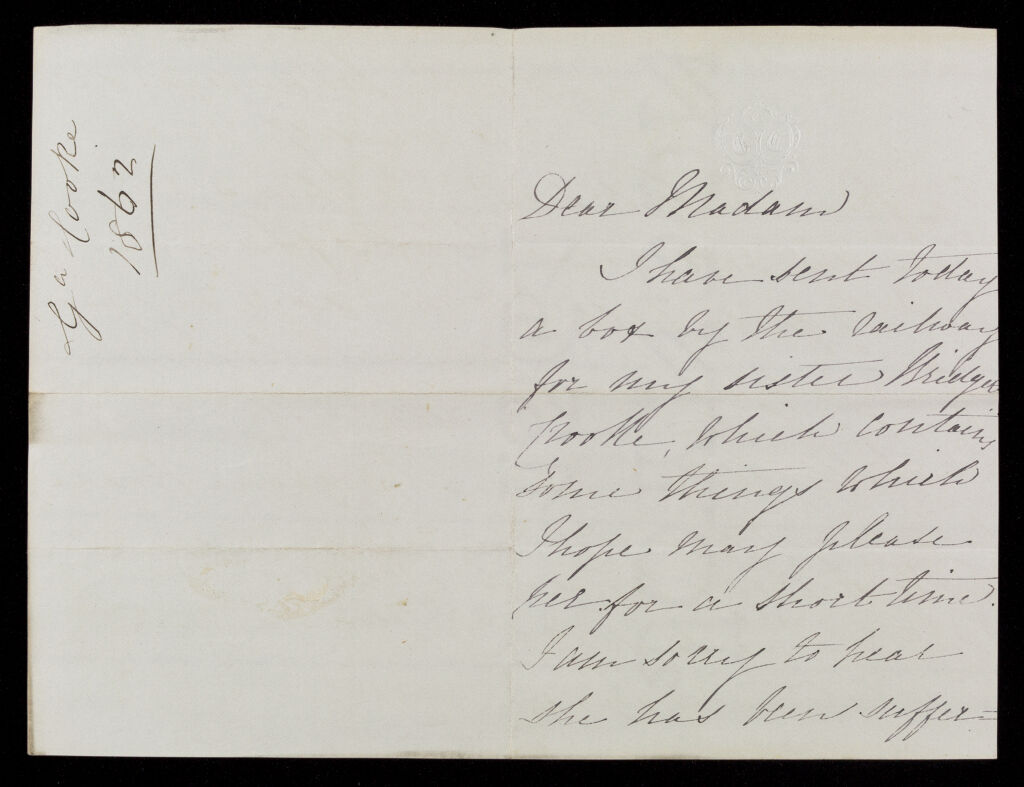 Ga Cooke
1862
Dear Madam
I have sent today
a box by the railway
for my sister Bridget
Cooke, which contains
some things which
I hope may please
her for a short time.
I am sorry to hear
she has been suffer=